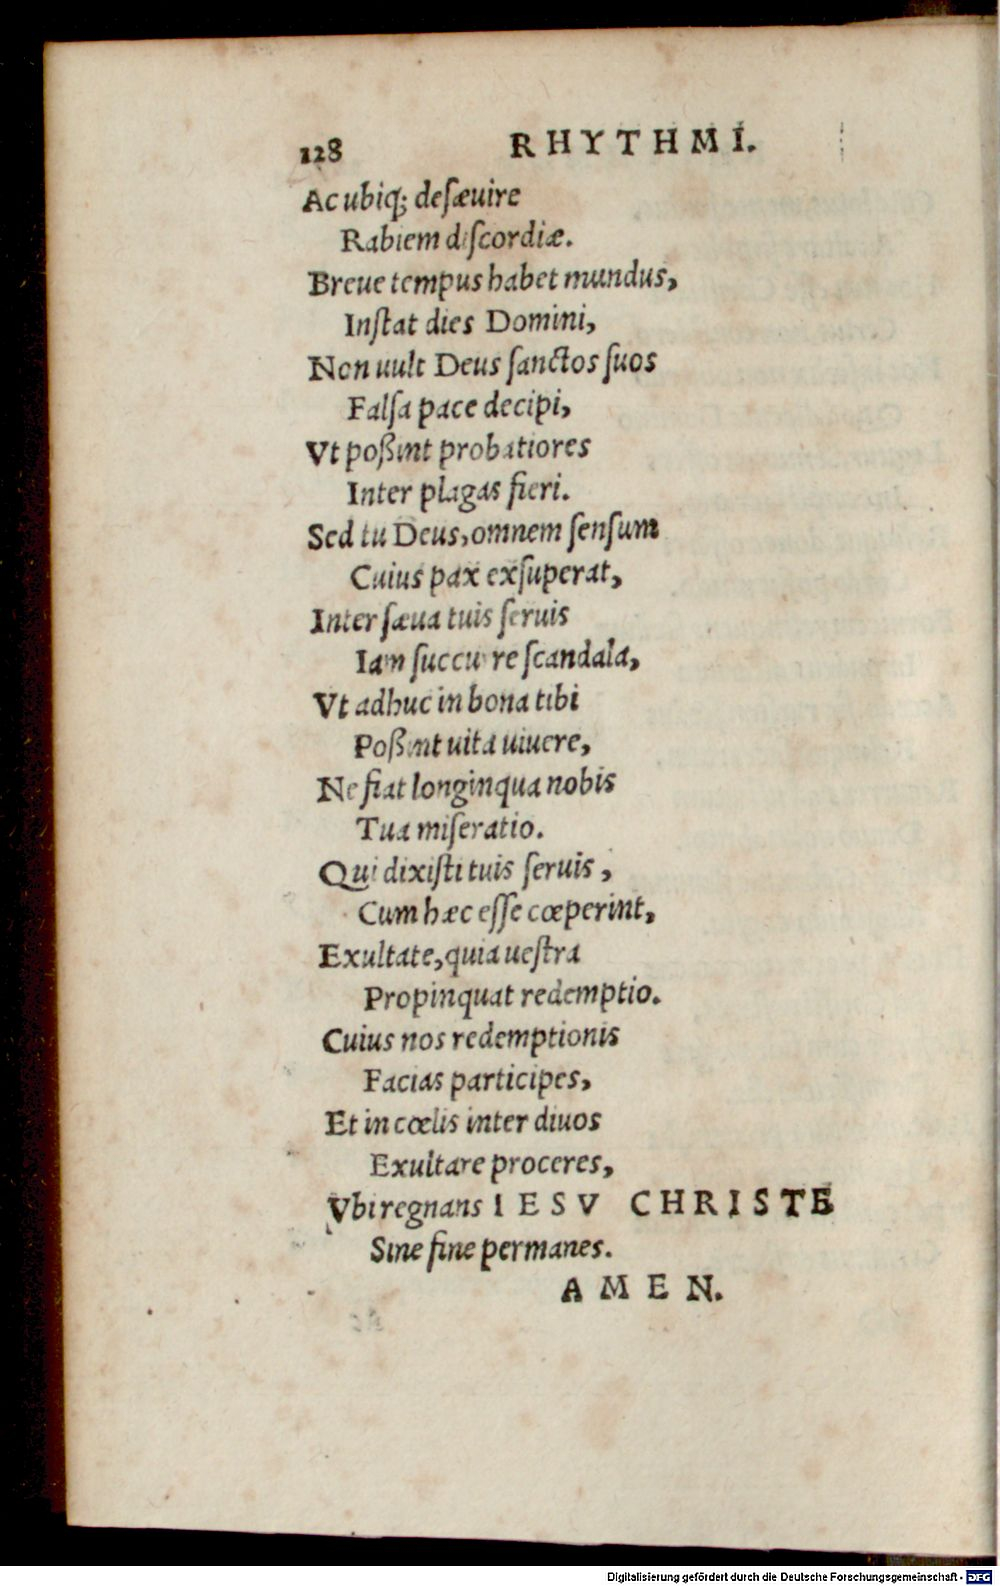 128 RHYTHMI.
Ac ubiq; desæuire
Rabiem discordiæ.
Breue tempus habet mundus,
Instat dies Domini,
Non uult Deus sanctos suos
Falsa pace decipi,
Vt poßint probatiores
Inter plagas fieri.
Sed tu Deus, omnem sensum
Cuius pax exsuperat,
Inter sæua tuis seruis
Iam succurre scandala,
Vt adhuc in bona tibi
Poßint uita uiuere,
Ne fiat longinqua nobis
Tua miseratio.
Qui dixisti tuis seruis,
Cum hæc esse cœperint,
Exultate, quia uestra
Propinquat redemptio.
Cuius nos redemptionis
Facias participes,
Et in cœlis inter diuos
Exultare proceres,
Vbi regnans IESV CHRISTE
Sine fine permanes.
AMEN.
Digitalisierung gefördert durch die Deutsche Forschungsgemeinschaft - DFG